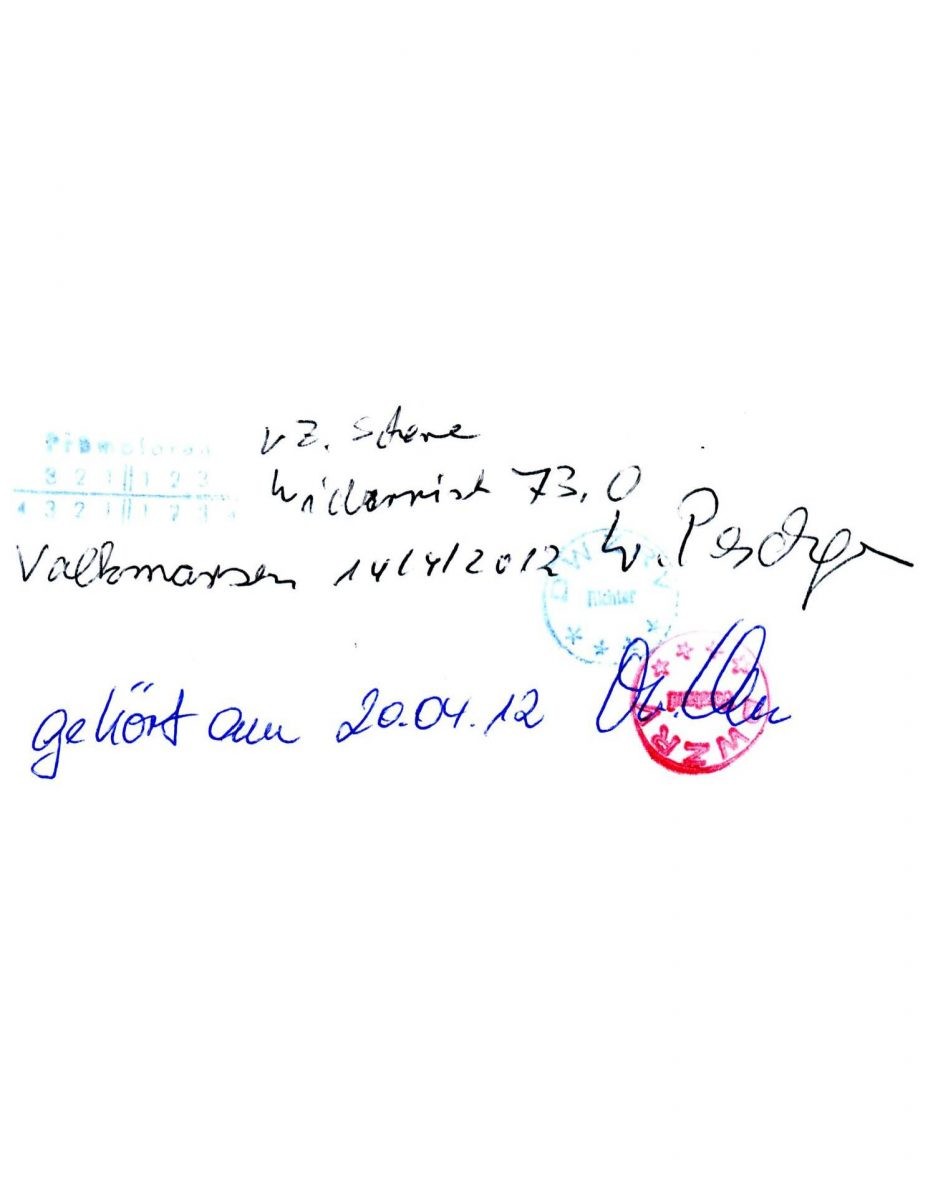 Prämolaren
vz. Schere
3 2 1 1 2 3
Widerrist 73,0
4 3 2 1 1 2 3 4
Volkmarsen 14/4/2012 W.
DWZRV
Richter
gekört am 20.04.12
DWZRV